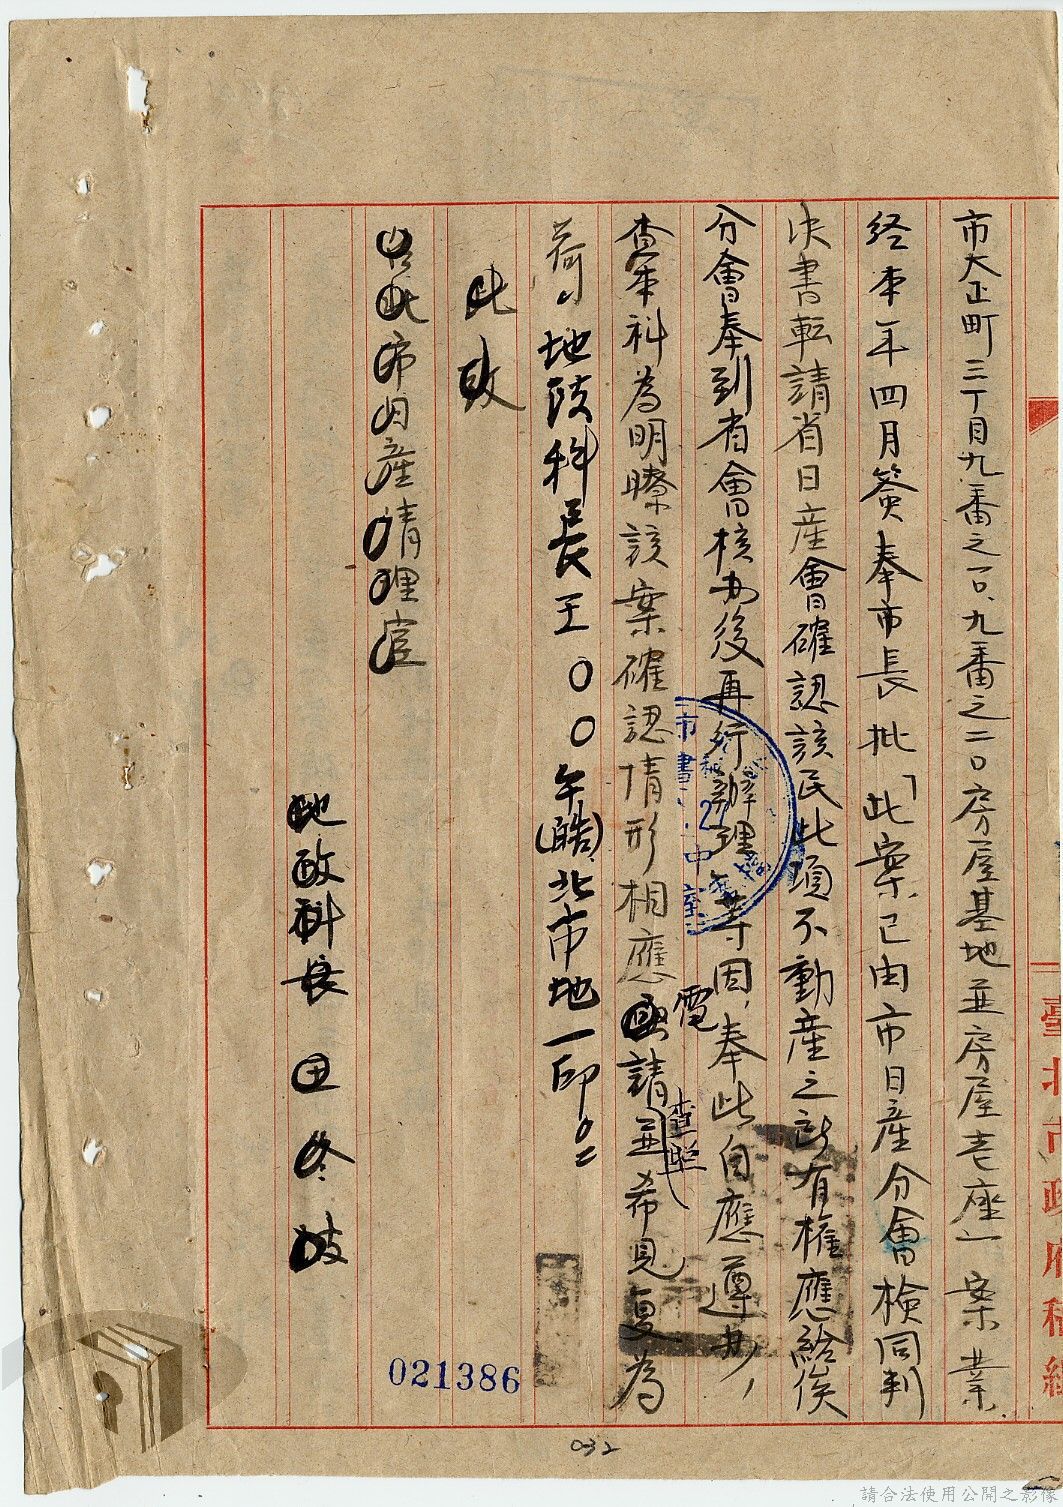 臺北市政府稿紙
市大正町三丁目九番之一〇、九番之二〇房屋基地並房屋壱座」案業
経本年四月簽奉市長批「此案已由市日産分會檢同判
決書転請省日産會確認該民此項不動産之所有権應給俟
分會奉到省會核办後再行辦理」等因,奉此自應遵办,
查本科為明瞭該案確認情形相應電請查照並希見复為
荷。地政科長王〇〇午(皓)北市地一印。
此致
台北市日産清理室
地政科長 王
021386
032
請合法使用公開之影像